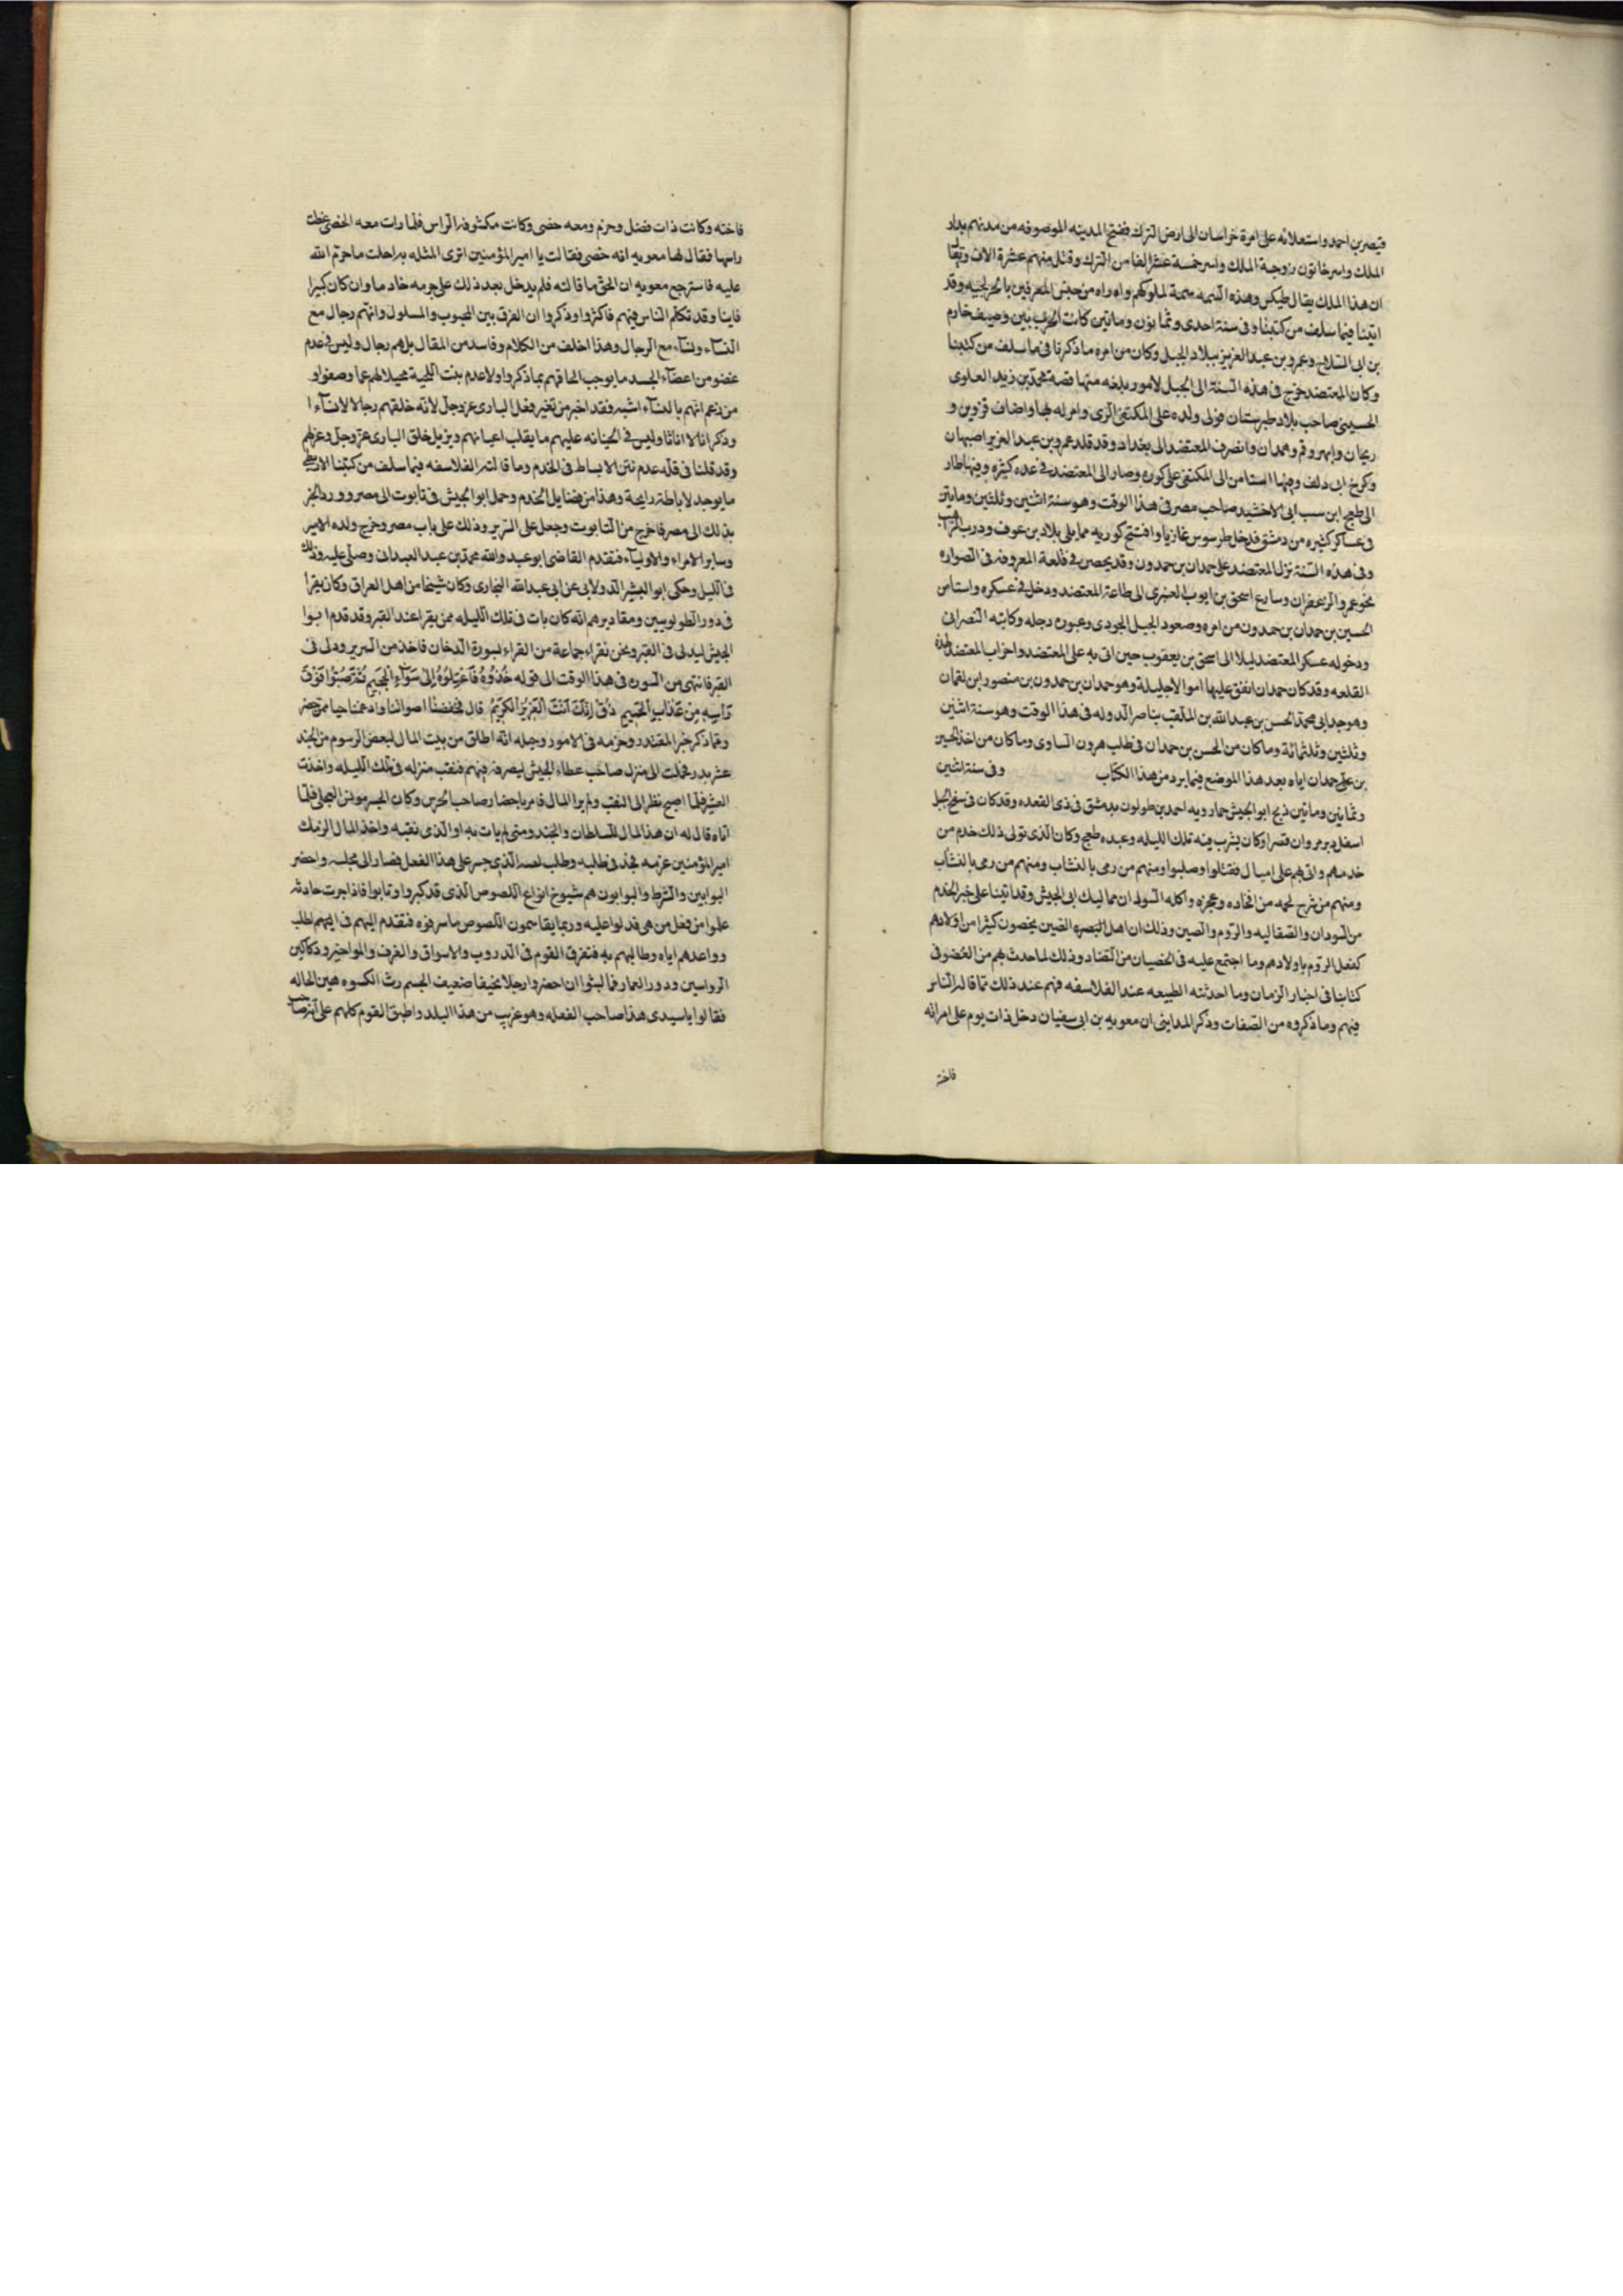 قيصر بن احمد واستعلائه على امرة خراسان الى ارض الترك ففتح المدينه الموصوفه من مدنهم بدار
الملك واسر خاتون زوجة الملك واسر خمسة عشر الفا من الترك وقتل منهم عشرة الاف ويقا
ان هذا الملك يقال طبكس وهذه السمه سمة لملوكهم واراه من جيش المعرفين بالخرلجيه وقد
اتينا فيما سلف من كتبنا وفى سنة احدى وثمانون ومايتين كانت الحرب بين وصيف خادم
بن ابى الساج وعمرو بن عبد العزيز ببلاد الجبل وكان من امره ما ذكرنا فيما سلف من كتبنا
وكان المعتضد خرج فى هذه السنة الى الجبل لامور بلغه منها قصة محمد بن زيد العلوى
الحسينى صاحب بلاد طبرستان فولى ولده على المكتفى الرى وامر له بها واضاف قزوين و
زنجان وابهر وقم وهمدان وانصرف المعتضد الى بغداد وقد قلد عمرو بن عبد العزيز اصبهان
وكرخ ابى دلف وفيها استامن الى المكتفى على كوره وصار الى المعتضد فى عده كثيره وفيها طار
الى طغج ابن سبب ابى الاخشيد صاحب مصر فى هذا الوقت وهو سنة اثنين وثلثين ومايتين
فى عساكر كثيره من دمشق فدخل طرسوس غازيا وافتتح كوريه مما يلى بلاد بن عوف ودرب الراهب
وفى هذه السنة نزل المعتضد على حمدان بن حمدون وقد تحصن فى قلعة المعروفه فى الصواره
نحو عمر والزعفران وسارع اسحق بن ايوب العنبرى الى طاعة المعتضد ودخل فى عسكره واستامن
الحسين بن حمدان بن حمدون من امره وصعود الجبل الجودى وعبوره دجله وكاتبه النصرانى
ودخوله عسكر المعتضد ليلا الى اسحق بن يعقوب حين اتى به على المعتضد واخراب المعتضد لهذه
القلعه وقد كان حمدان انفق عليها اموالا جليلة وهو حمدان بن حمدون بن منصور ابن لقمان
وهو جد ابى محمد الحسن بن عبد الله بن الملقب بناصر الدوله فى هذا الوقت وهو سنة اثنين
وثلثين وثلثمائة وما كان من الحسن بن حمدان فى طلب هرون الساوى وما كان من اخذ الحسين
بن على حمدان اياه بعد هذا الموضع فيما يرد من هذا الكتاب وفى سنة اثنين
وثمانين ومايتين ذبح ابو الجيش خمارويه احمد بن طولون بدمشق فى ذى القعده وقد كان فى سفح الجبل
اسفل دير مروان قصرا وكان يشرب فيه تلك الليله وعبده طغج وكان الذى تولى ذلك خدم من
خدمهم واتى بهم على اميال فقتلوا وصلبوا ومنهم من رمى بالنشاب ومنهم من رمى بالنشاب
ومنهم من شرح لحمه من افخاذه وعجزه واكله السودان مماليك ابى الجيش وقد اتينا على خبر الخدم
من السودان والصقاليه والروم والصين وذلك ان اهل البصره الصين يخصون كثيرا من اولادهم
كفعل الروم باولادهم وما اجتمع عليه فى الخصيان من التضاد وذلك لما حدث بهم من العضو فى
كتابنا فى اخبار الزمان وما احدثته الطبيعه عند الفلاسفه فيهم عند ذلك مما قاله الناس
فيهم وما ذكروه من الصفات وذكر المداينى ان معويه بن ابى سفيان دخل ذات يوم على امراته
فاخته
فاخته وكانت ذات فضل وحزم ومعه خصى وكانت مكشوفه الراس فلما رات معه الخصى غطت
راسها فقال لها معويه انه خصى فقالت يا امير المؤمنين اترى المثله به احلت ما حرم الله
عليه فاسترجع معويه ان الحق ما قالته فلم يدخل بعد ذلك على حرمه خادما وان كان كبيرا
فاينا وقد تكلم الناس فيهم فاكثروا وذكروا ان الفرق بين المجبوب والمسلول وانهم رجال مع
النساء ونساء مع الرجال وهذا اخلف من الكلام وفاسد من المقال بل هم رجال وليس فى عدم
عضو من اعضاء الجسد ما يوجب الحاقهم بما ذكروا ولا عدم بنت اللحية محيلا لهم عما وصفوا و
من زعم انهم بالنساء اشبه فقد اخبر من تغير فعل البارى عز وجل لانه خلقهم رجالا لا نساء ا
وذكرانا لا اناثا وليس فى الجنايه عليهم ما يقلب اعيانهم ويزيل خلق البارى عز وجل وعزلهم
وقد قلنا فى قله عدم نتن الاباط فى الخدم وما قالته الفلاسفه فيما سلف من كتبنا لان
ما يوجد لاباطه رايحة وهذا من فضايل الخدم وحمل ابو الجيش فى تابوت الى مصر وورد الخبر
بذلك الى مصر فاخرج من التابوت وجعل على السرير وذلك على باب مصر وخرج ولده الامير
وساير الامراء والاولياء فتقدم القاضى ابو عبد والله محمد بن عبد العبدانى وصلى عليه وذلك
فى الليل وحكى ابو البشر الدولابى عن ابى عبد الله البخارى وكان شيخا من اهل العراق وكان يقرا
فى دور الطولونيين ومقابرهم انه كان بات فى تلك الليله ممن يقرا عند القبر وقد قدم ابوا
الجيش ليدلى فى القبر ونحن نقراء جماعة من القراء لسورة الدخان فاخذ من السرير ودلى فى
القبر فانتهى من السوره فى هذا الوقت الى قوله خُذُوهُ فَاعْتِلُوهُ إِلَى سَوَآءِ الْجَحِيمِ ثُمَّ صُبُّوا فَوْقَ
رَأسِهِ مِنْ عَذَابِ الْحَمِيمِ ذُقْ إِنَّكَ أَنْتَ الْعَزِيزُ الْكَرِيمُ قال فخفضنا اصواتنا وادغمنا حيا ممن حضر
ومما ذكر خبر المقتدر وحزمه فى الامور وحيله انه اطلق من بيت المال لبعض الرسوم من الجند
عشر بدر فحملت الى منزل صاحب عطاء الجيش ليصرفه فيهم فنقب منزله فى تلك الليله واخذت
العشر فلما اصبح نظر الى النقب ولم ير المال فامر باحضار صاحب الحرس وكان الحرس مونس العجلى فلما
اتاه قال له ان هذا المال للسلطان والجند ومتى لم يات به او الذى نقبه واخذ المال الزمك
امير المؤمنين غرمه فجد فى طلبه وطلب لصه الذى جسر على هذا الفعل فصار الى مجلسه واحضر
البوابين والشرط والبوابون هم شيوخ انواع اللصوص الذى قد كبروا وتابوا فاذا جرت حادثه
علموا من فعل من هى فدلوا عليه وربما يقاسمون اللصوص ما سرقوه فتقدم اليهم فى الهم لطلب
وواعدهم اياه وطالبهم به فتفرق القوم فى الدروب والاسواق والغرف والمواخير ودكاكين
الرواسين ودور العمار فما لبثوا ان احضروا رجلا نحيفا ضعيف الجسم رث الكسوه هين الحاله
فقالوا يا سيدى هذا صاحب الفعله وهو غريب من هذا البلد واطبق القوم كلهم على انه صاحب